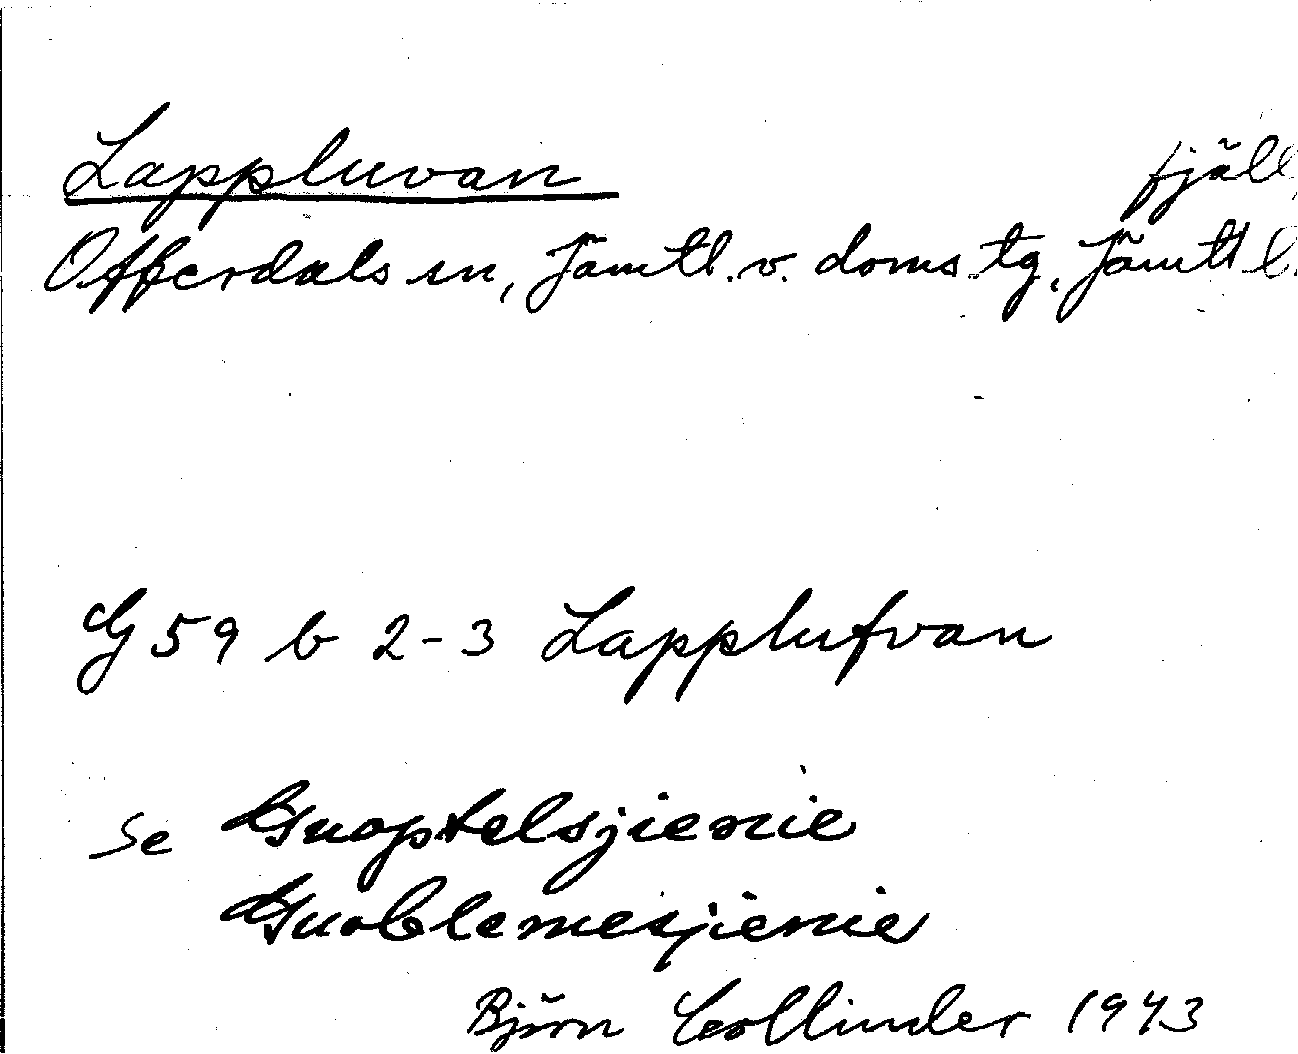 Lappluvan fjäll
Offerdals sn, Jämtl. v. doms. tg. Jämtl l.
G 59 b 2-3 Lapplufvan
Se Guoptelsjienie
Guoblemesjienie
Björn Collinder 1943